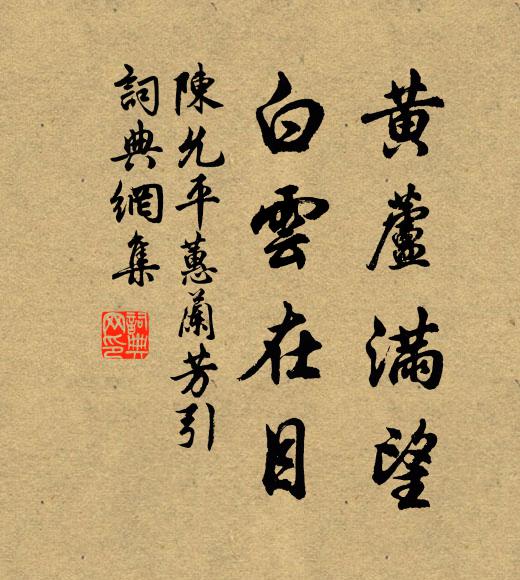 黃蘆滿望
白雲在目
陳允平蕙蘭芳引
詞典網集
詞典網印